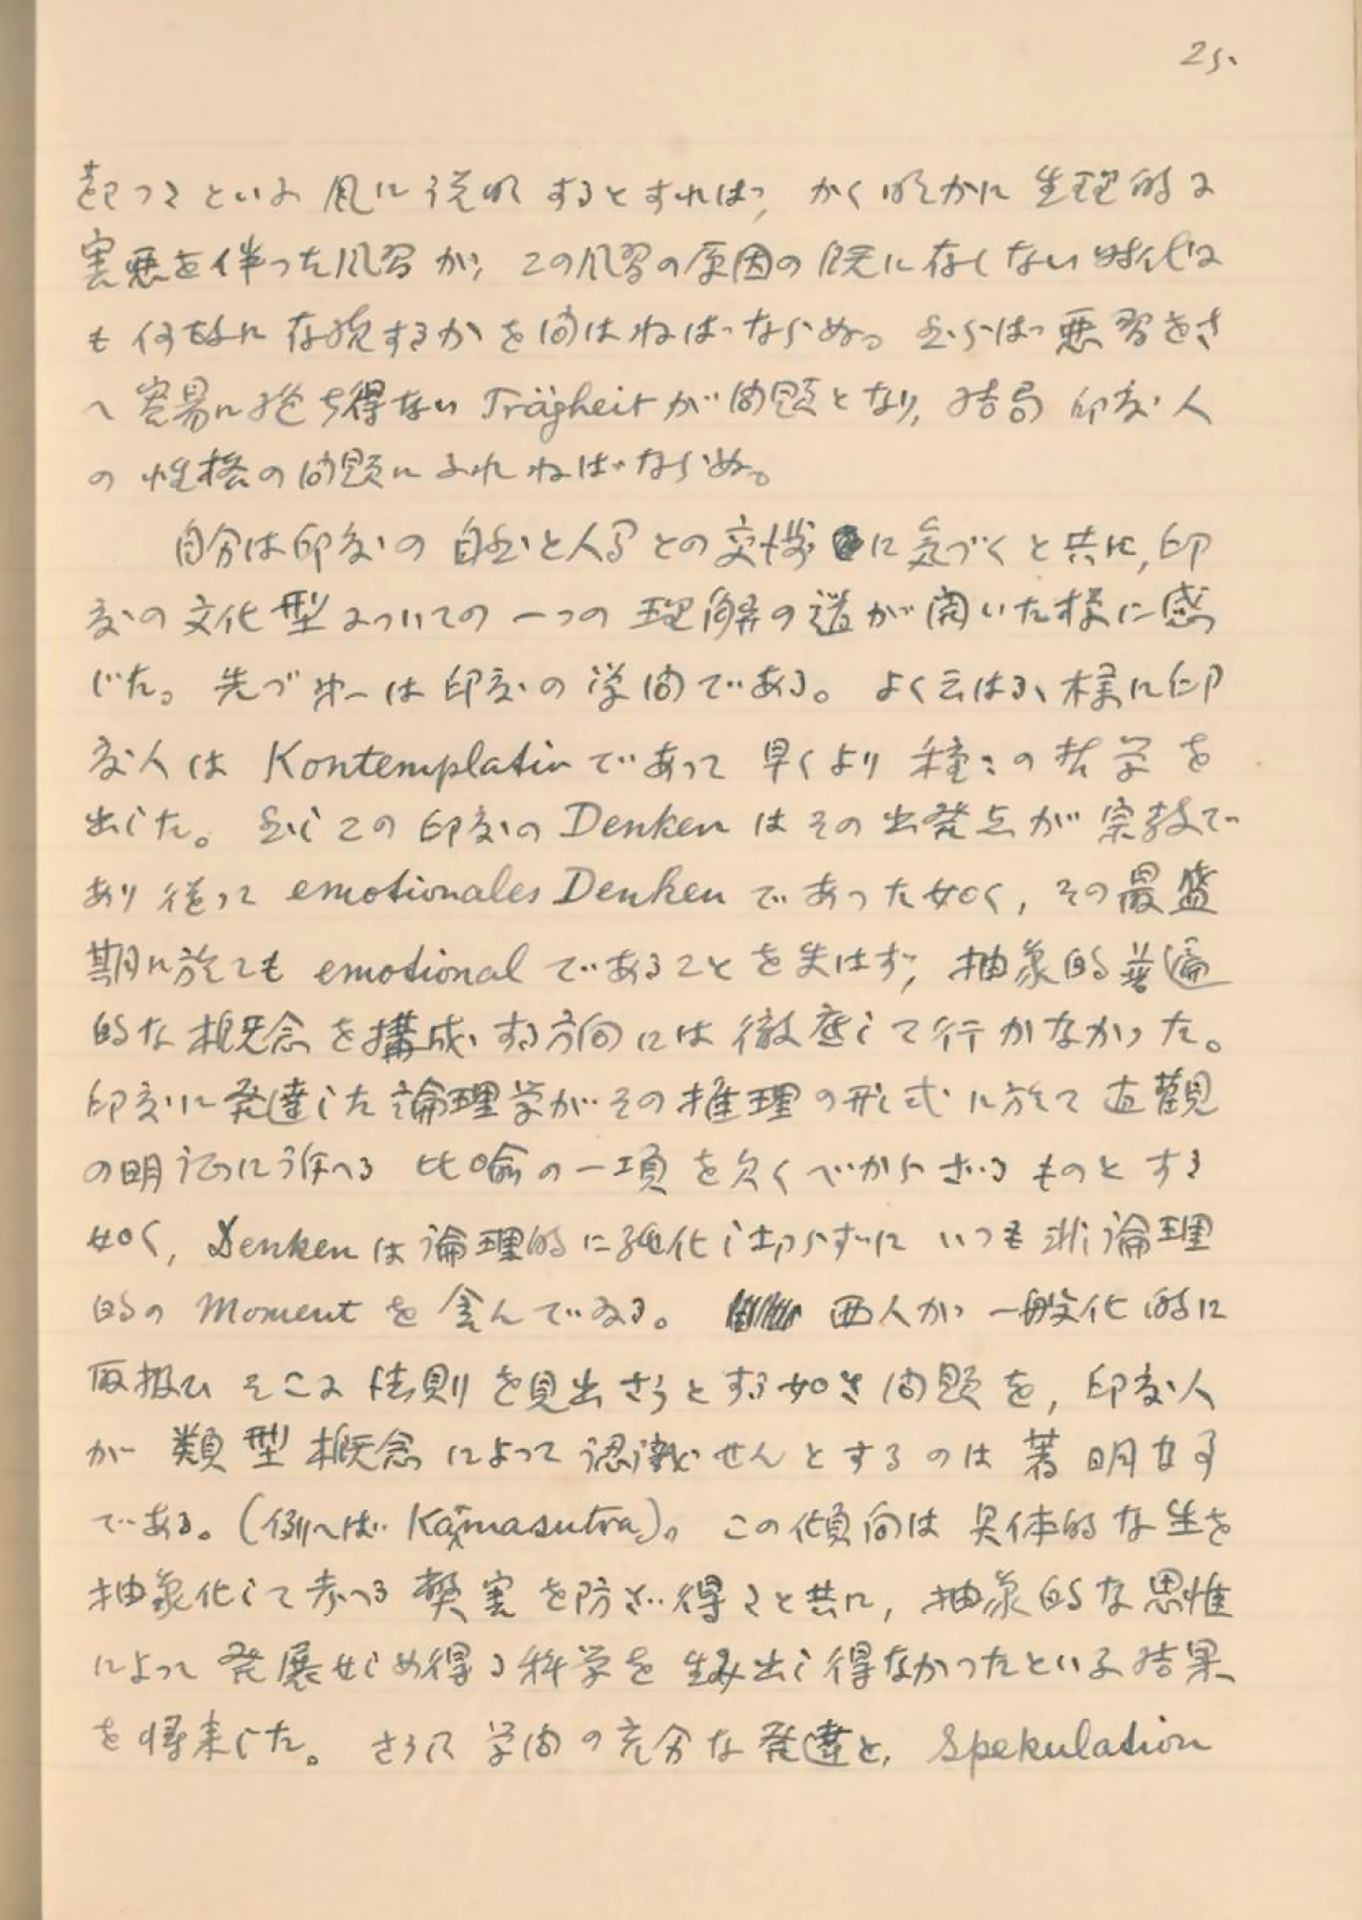 25.
起つたといふ風に説明するとすれば、かく明かに生理的に
害悪を伴った風習が、この風習の原因の既に存しない時代に
も何故に存続するかを問はねばならぬ。然らば悪習をさ
へ容易に絶ち得ない Trägheit が問題となり、結局印度人
の性格の問題にふれねばならぬ。
自分は印度の自然と人間との交渉に気づくと共に、印
度の文化型についての一つの理解の道が開いた様に感
じた。先づ第一は印度の学問である。よく云はるゝ様に印
度人は Kontemplativ であって早くより種々の哲学を
出した。然しこの印度の Denken はその出発点が宗教で
あり従って emotionales Denken であった如く、その最盛
期に於ても emotional であることを失はず、抽象的普遍
的な概念を構成する方向には徹底して行かなかった。
印度に発達した論理学がその推理の形式に於て直観
の明証に訴へる比喩の一項を欠くべからざるものとする
如く、Denken は論理的に純化し切らずに いつも非論理
的の Moment を含んでゐる。西人が一般化的に
取扱ひそこに法則を見出さうとする如き問題を、印度人
が類型概念によって認識せんとするのは著明な事
である。(例へば Kāmasutra)。この傾向は具体的な生を
抽象化して考へる弊害を防ぎ得たと共に、抽象的な思惟
によって発展せしめ得る科学を生み出し得なかったといふ結果
を将来した。さらに学問の充分な発達と、Spekulation